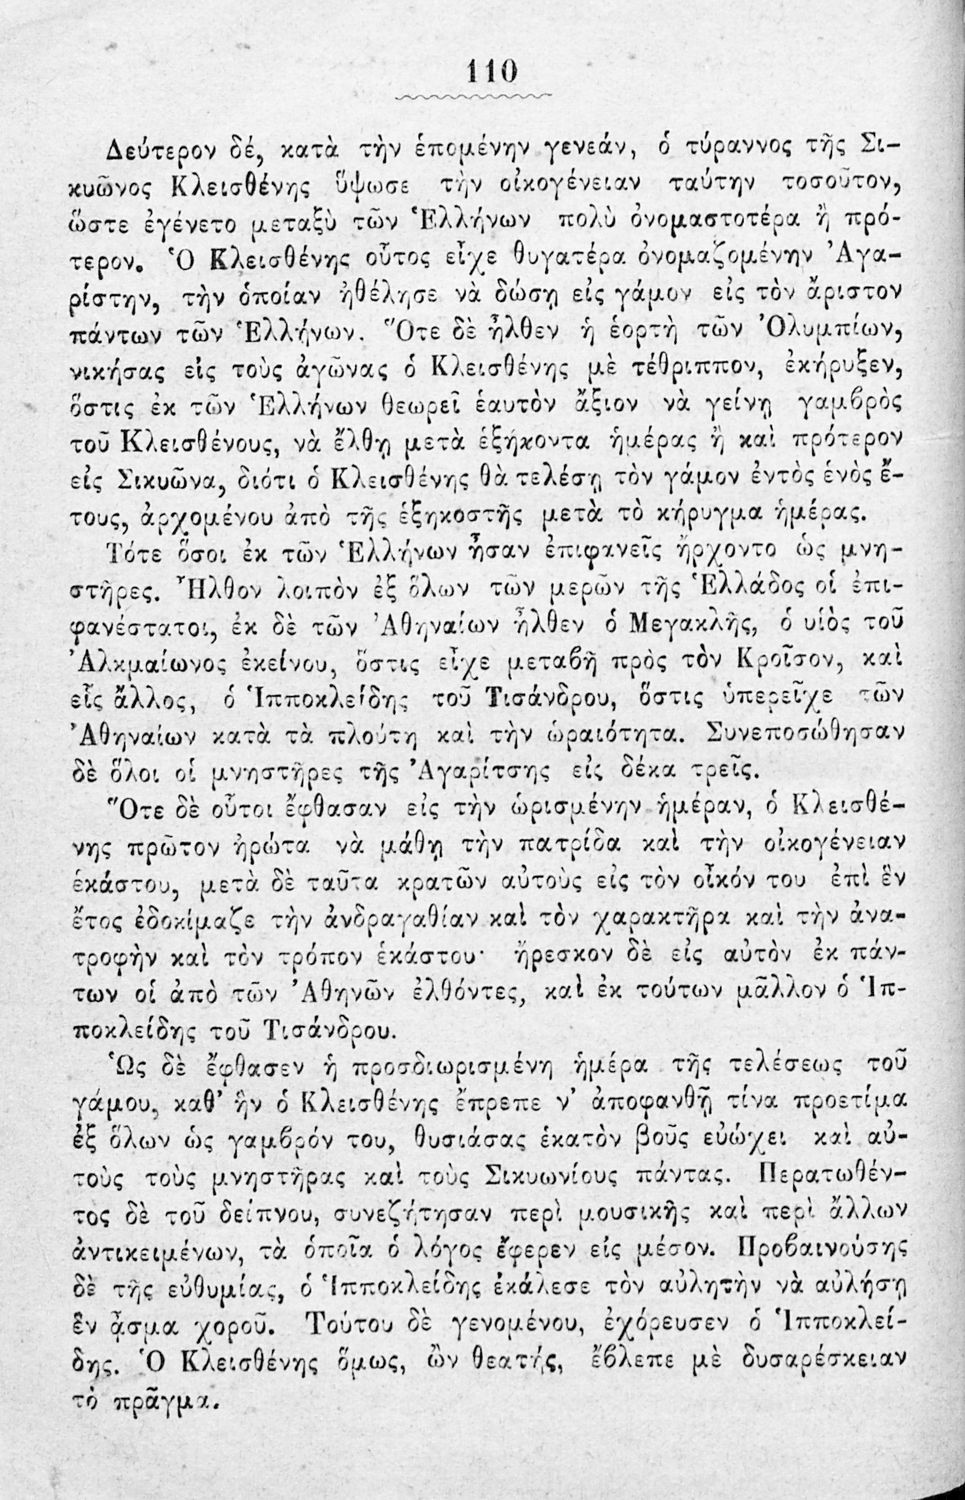 110
Δεύτερον δέ, κατὰ τὴν ἑπομένην γενεάν, ὁ τύραννος τῆς Σι-
κυῶνος Κλεισθένης ὕψωσε τὴν οἰκογένειαν ταύτην τοσοῦτον,
ὥστε ἐγένετο μεταξὺ τῶν Ἑλλήνων πολὺ ὀνομαστοτέρα ἢ πρό-
τερον. Ὁ Κλεισθένης οὗτος εἶχε θυγατέρα ὀνομαζομένην Ἀγα-
ρίστην, τὴν ὁποίαν ἠθέλησε νὰ δώσῃ εἰς γάμον εἰς τὸν ἄριστον
πάντων τῶν Ἑλλήνων. Ὅτε δὲ ἦλθεν ἡ ἑορτὴ τῶν Ὀλυμπίων,
νικήσας εἰς τοὺς ἀγῶνας ὁ Κλεισθένης μὲ τέθριππον, ἐκήρυξεν,
ὅστις ἐκ τῶν Ἑλλήνων θεωρεῖ ἑαυτὸν ἄξιον νὰ γείνῃ γαμβρὸς
τοῦ Κλεισθένους, νὰ ἔλθῃ μετὰ ἑξήκοντα ἡμέρας ἢ καὶ πρότερον
εἰς Σικυῶνα, διότι ὁ Κλεισθένης θὰ τελέσῃ τὸν γάμον ἐντὸς ἑνὸς ἔ-
τους, ἀρχομένου ἀπὸ τῆς ἑξηκοστῆς μετὰ τὸ κήρυγμα ἡμέρας.
Τότε ὅσοι ἐκ τῶν Ἑλλήνων ἦσαν ἐπιφανεῖς ἤρχοντο ὡς μνη-
στῆρες. Ἦλθον λοιπὸν ἐξ ὅλων τῶν μερῶν τῆς Ἑλλάδος οἱ ἐπι-
φανέστατοι, ἐκ δὲ τῶν Ἀθηναίων ἦλθεν ὁ Μεγακλῆς, ὁ υἱὸς τοῦ
Ἀλκμαίωνος ἐκείνου, ὅστις εἶχε μεταβῆ πρὸς τὸν Κροῖσον, καὶ
εἷς ἄλλος, ὁ Ἱπποκλείδης τοῦ Τισάνδρου, ὅστις ὑπερεῖχε τῶν
Ἀθηναίων κατὰ τὰ πλούτη καὶ τὴν ὡραιότητα. Συνεποσώθησαν
δὲ ὅλοι οἱ μνηστῆρες τῆς Ἀγαρίτσης εἰς δέκα τρεῖς.
Ὅτε δὲ οὗτοι ἔφθασαν εἰς τὴν ὡρισμένην ἡμέραν, ὁ Κλεισθέ-
νης πρῶτον ἠρώτα νὰ μάθῃ τὴν πατρίδα καὶ τὴν οἰκογένειαν
ἑκάστου, μετὰ δὲ ταῦτα κρατῶν αὐτοὺς εἰς τὸν οἶκόν του ἐπὶ ἓν
ἔτος ἐδοκίμαζε τὴν ἀνδραγαθίαν καὶ τὸν χαρακτῆρα καὶ τὴν ἀνα-
τροφὴν καὶ τὸν τρόπον ἑκάστου· ἤρεσκον δὲ εἰς αὐτὸν ἐκ πάν-
των οἱ ἀπὸ τῶν Ἀθηνῶν ἐλθόντες, καὶ ἐκ τούτων μᾶλλον ὁ Ἱπ-
ποκλείδης τοῦ Τισάνδρου.
Ὡς δὲ ἔφθασεν ἡ προσδιωρισμένη ἡμέρα τῆς τελέσεως τοῦ
γάμου, καθ’ ἣν ὁ Κλεισθένης ἔπρεπε ν’ ἀποφανθῇ τίνα προετίμα
ἐξ ὅλων ὡς γαμβρόν του, θυσιάσας ἑκατὸν βοῦς εὐώχει καὶ αὐ-
τοὺς τοὺς μνηστῆρας καὶ τοὺς Σικυωνίους πάντας. Περατωθέν-
τος δὲ τοῦ δείπνου, συνεζήτησαν περὶ μουσικῆς καὶ περὶ ἄλλων
ἀντικειμένων, τὰ ὁποῖα ὁ λόγος ἔφερεν εἰς μέσον. Προβαινούσης
δὲ τῆς εὐθυμίας, ὁ Ἱπποκλείδης ἐκάλεσε τὸν αὐλητὴν νὰ αὐλήσῃ
ἓν ᾆσμα χοροῦ. Τούτου δὲ γενομένου, ἐχόρευσεν ὁ Ἱπποκλεί-
δης. Ὁ Κλεισθένης ὅμως, ὢν θεατής, ἔβλεπε μὲ δυσαρέσκειαν
τὸ πρᾶγμα.